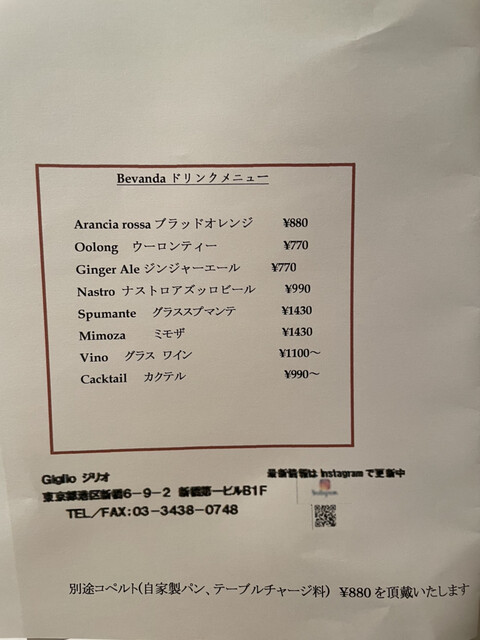 Bevanda ドリンクメニュー
Arancia rossa ブラッドオレンジ ¥880
Oolong ウーロンティー ¥770
Ginger Ale ジンジャーエール ¥770
Nastro ナストロアズッロビール ¥990
Spumante グラススプマンテ ¥1430
Mimoza ミモザ ¥1430
Vino グラス ワイン ¥1100～
Cacktail カクテル ¥990～
Giglio ジリオ
最新情報は Instagram で更新中
東京都港区新橋6－9－2 新橋第一ビルB1F
Instagram
TEL／FAX：03－3438－0748
別途コペルト(自家製パン、テーブルチャージ料) ¥880 を頂戴いたします